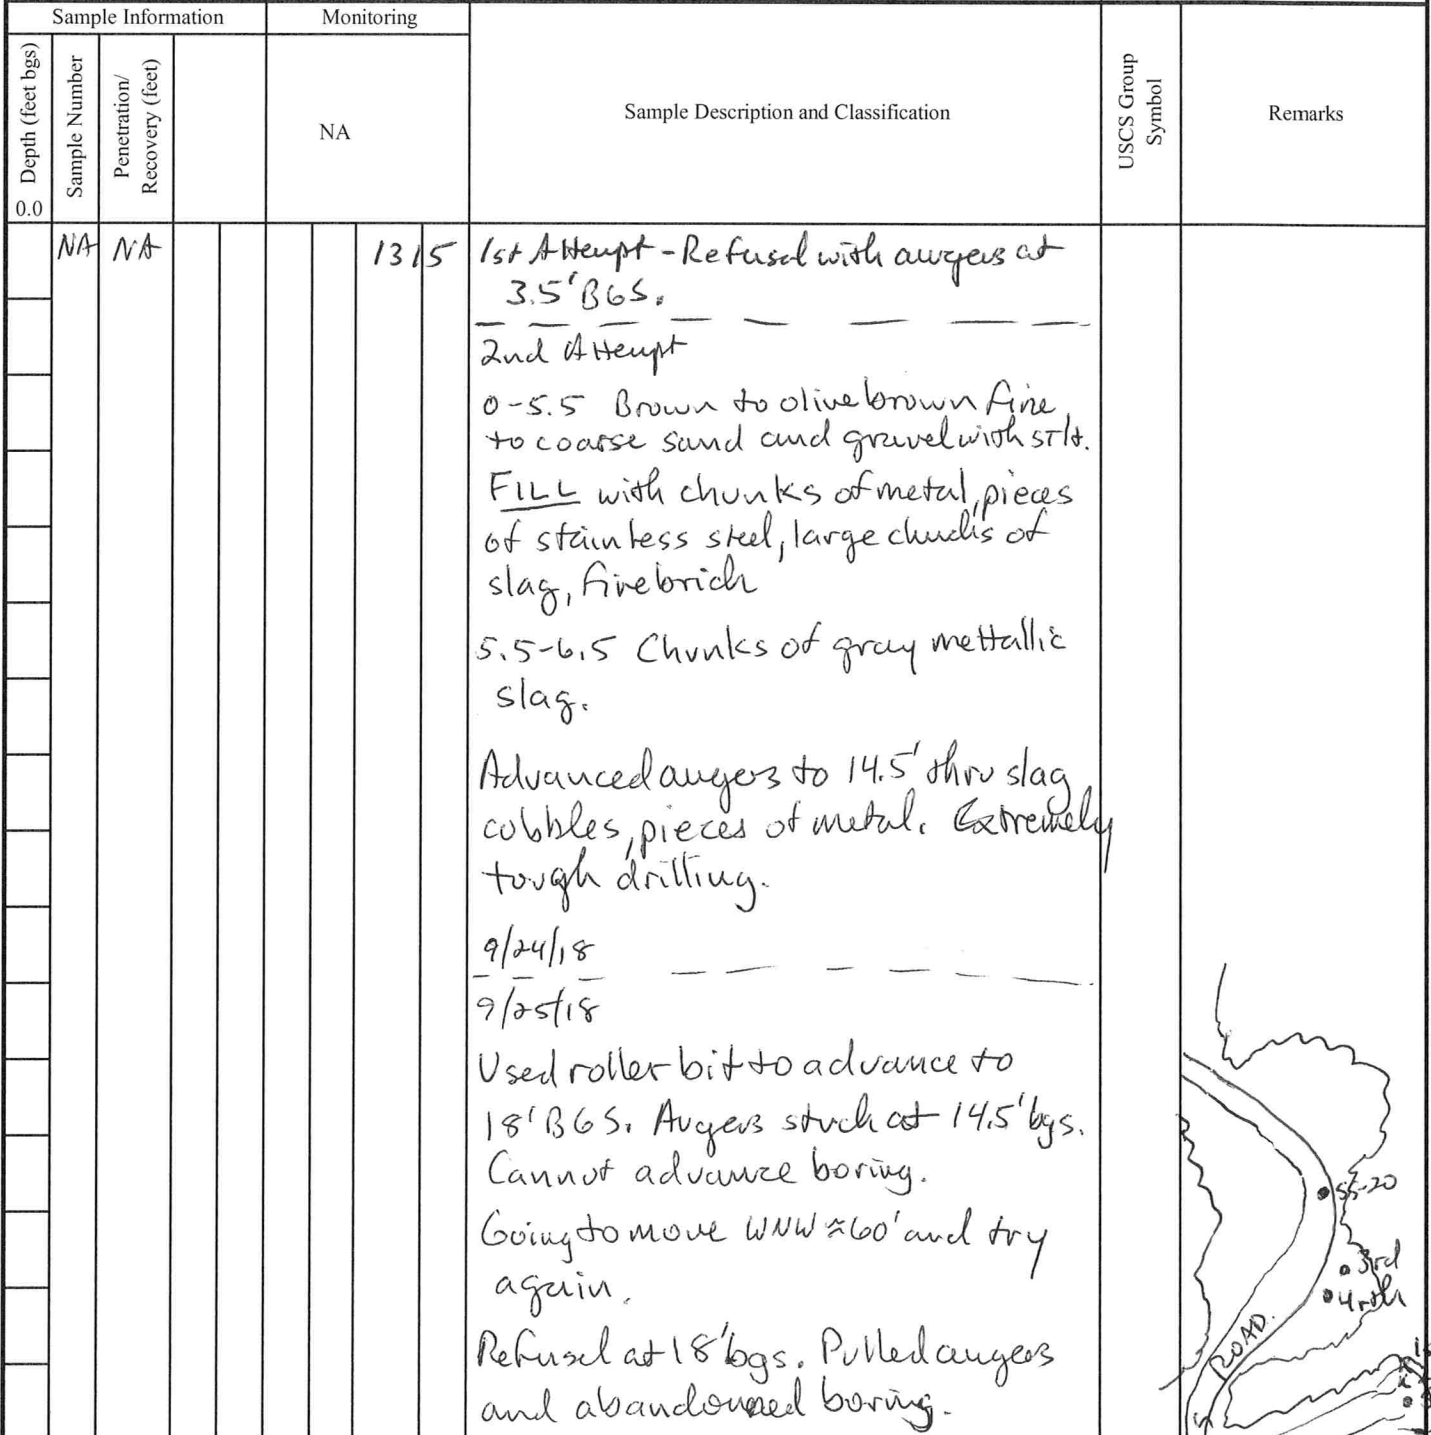 Sample Information
Monitoring
Depth (feet bgs)
0.0
Sample Number
Penetration/
Recovery (feet)
NA
Sample Description and Classification
USCS Group
Symbol
Remarks
NA
NA
1315
1st Attempt - Refusal with augers at
3.5' BGS.
2nd Attempt
0-5.5 Brown to olive brown fine
to coarse sand and gravel with silt.
FILL with chunks of metal, pieces
of stainless steel, large chucks of
slag, firebrick
5.5-6.5 Chunks of gray mettallic
slag.
Advanced augers to 14.5' thru slag
cobbles, pieces of metal. Extremely
tough drilling.
9/24/18
9/25/18
Used roller bit to advance to
18' BGS. Augers stuck at 14.5' bgs.
Cannot advance boring.
Going to move WNW ≈60' and try
again.
Refusal at 18' bgs. Pulled augers
and abandonned boring.
SS-20
3rd
4rth
ROAD